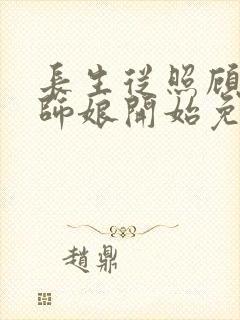 長生從照顧
師娘開始免
趙鼎